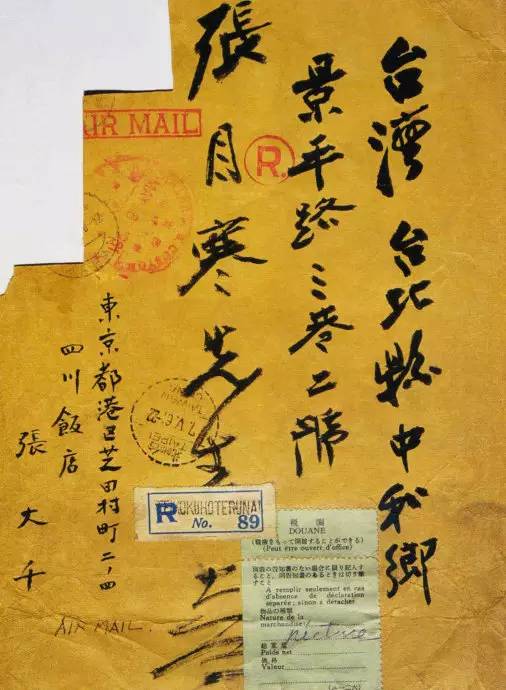 台灣 台北縣中和鄉
景平路三巷二號
張目寒先生
東京都港区芝田村町二ノ四
四川飯店
張大千
AIR MAIL.
AIR MAIL
R.
TAIPEI
R
No. 89
税関
DOUANE
(Peut être ouvert d'office)
A remplir seulement en cas
d'absence de déclaration
séparée; sinon à détacher
物品の種類
Nature de la
marchandise
picture
Poids net
価格
Valeur